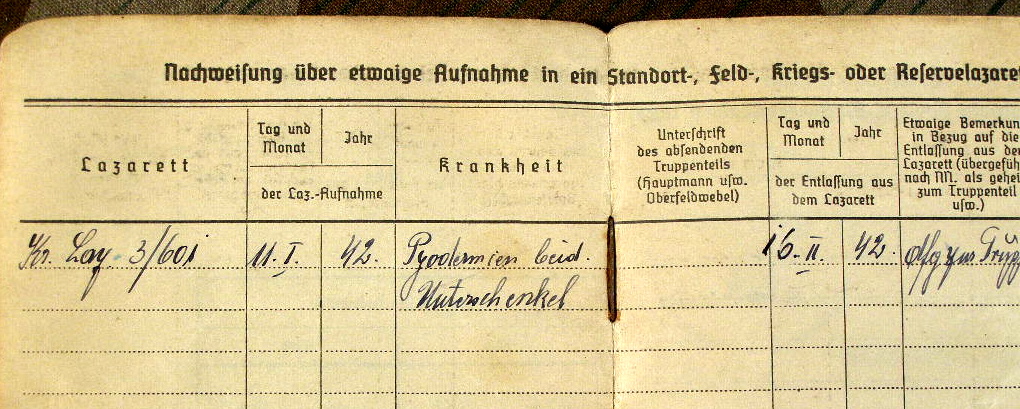 Nachweisung über etwaige Aufnahme in ein Standort-, Feld-, Kriegs- oder Reservelazaret
Lazarett
Tag und
Monat
Jahr
der Laz.-Aufnahme
Krankheit
Unterschrift
des absendenden
Truppenteils
(Hauptmann usw.
Oberfeldwebel)
Tag und
Monat
Jahr
der Entlassung aus
dem Lazarett
Etwaige Bemerkun
in Bezug auf die
Entlassung aus dem
Lazarett (übergefüh
nach NN. als gehei
zum Truppenteil
usw.)
Kr. Laz. 3/601 11. I. 42. Pyodermien beid. 16. II. 42. zur Trupp
Unterschenkel